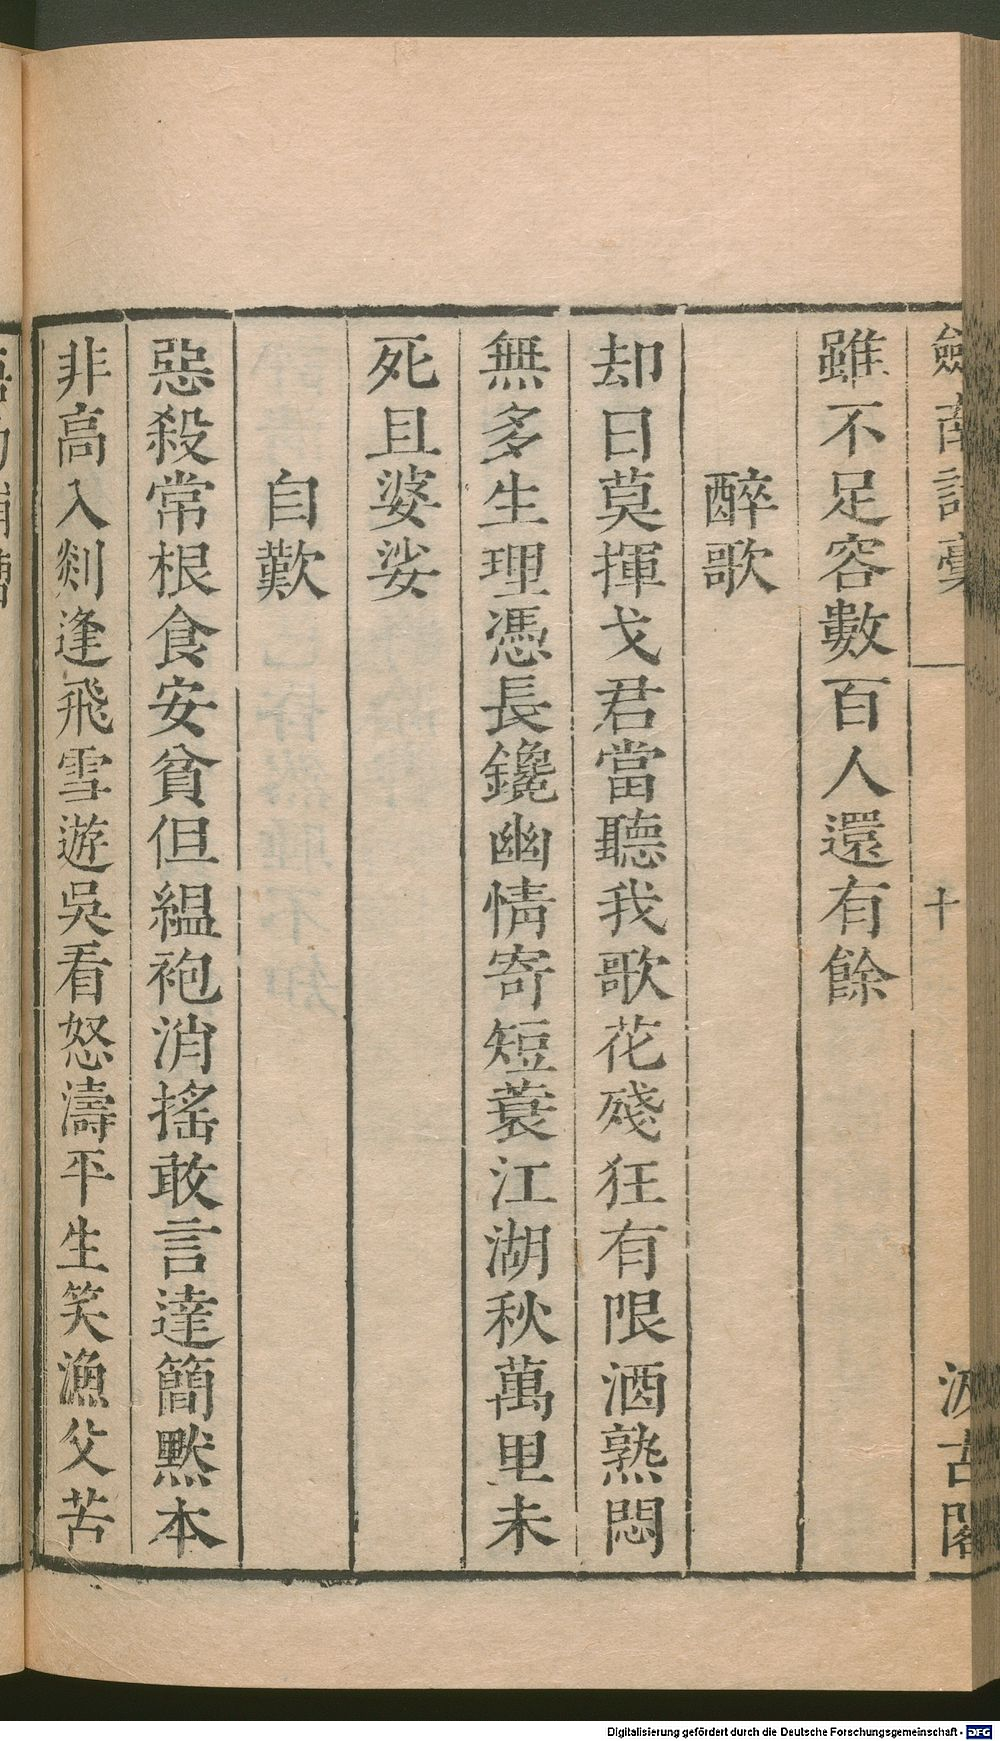 劍南詩稾 十 汲古閣
雖不足容數百人還有餘
醉歌
却日莫揮戈君當聽我歌花殘狂有限酒熟悶
無多生理憑長鑱幽情寄短蓑江湖秋萬里未
死且婆娑
自歎
惡殺常根食安貧但縕袍消搖敢言達簡黙本
非高入剡逢飛雪遊吳看怒濤平生笑漁父苦
Digitalisierung gefördert durch die Deutsche Forschungsgemeinschaft - DFG